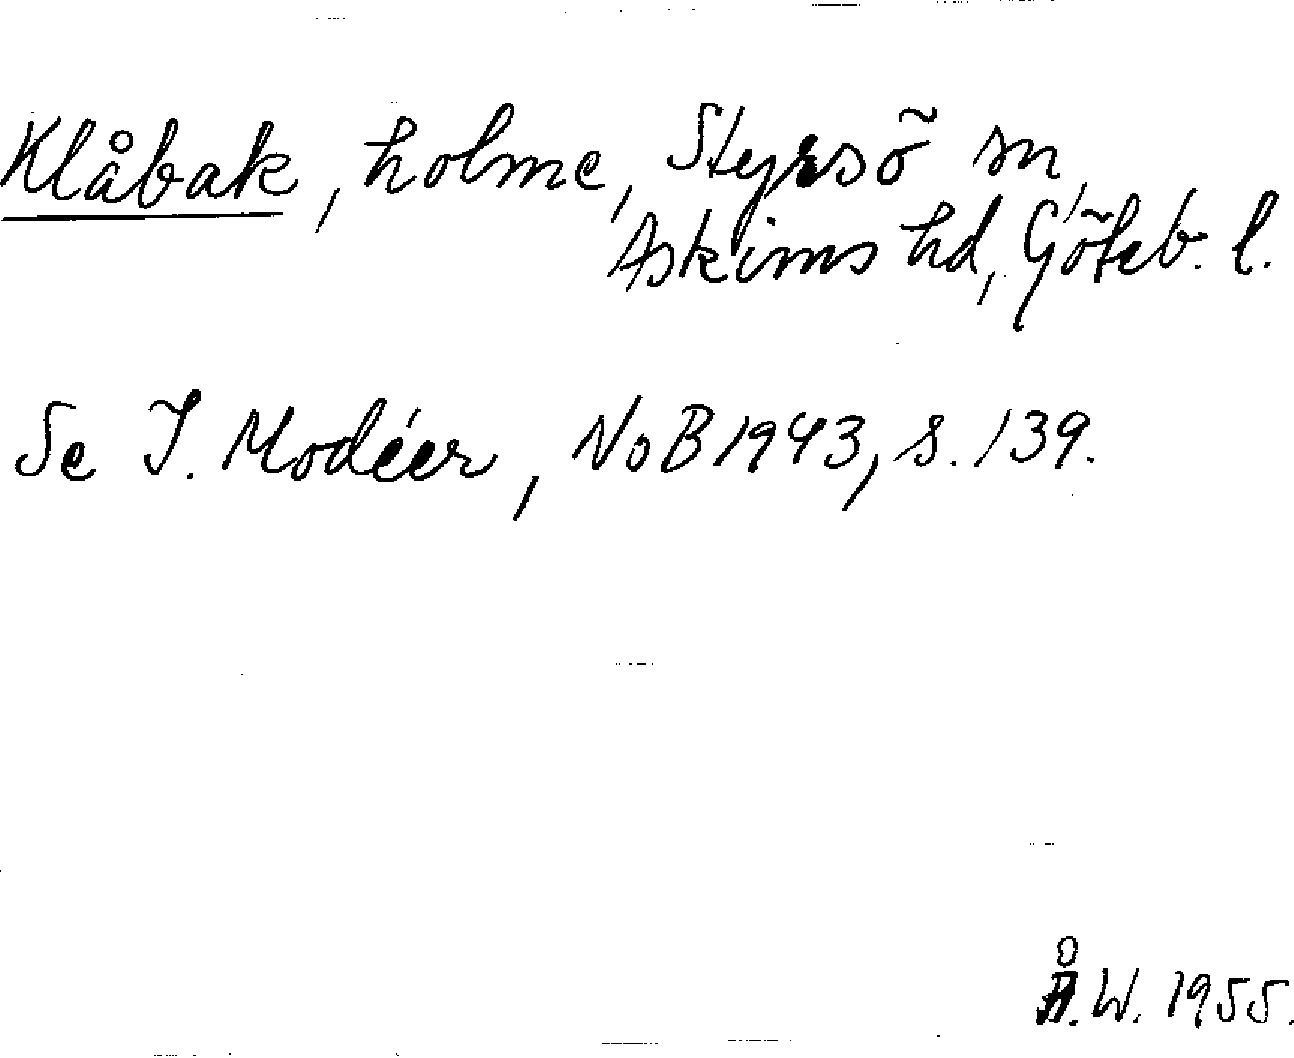 Klåbak, holme, Styrsö sn,
Askims hd, Göteb. l.
Se I. Modéer, NoB 1943, s. 139.
Å.W. 1955.